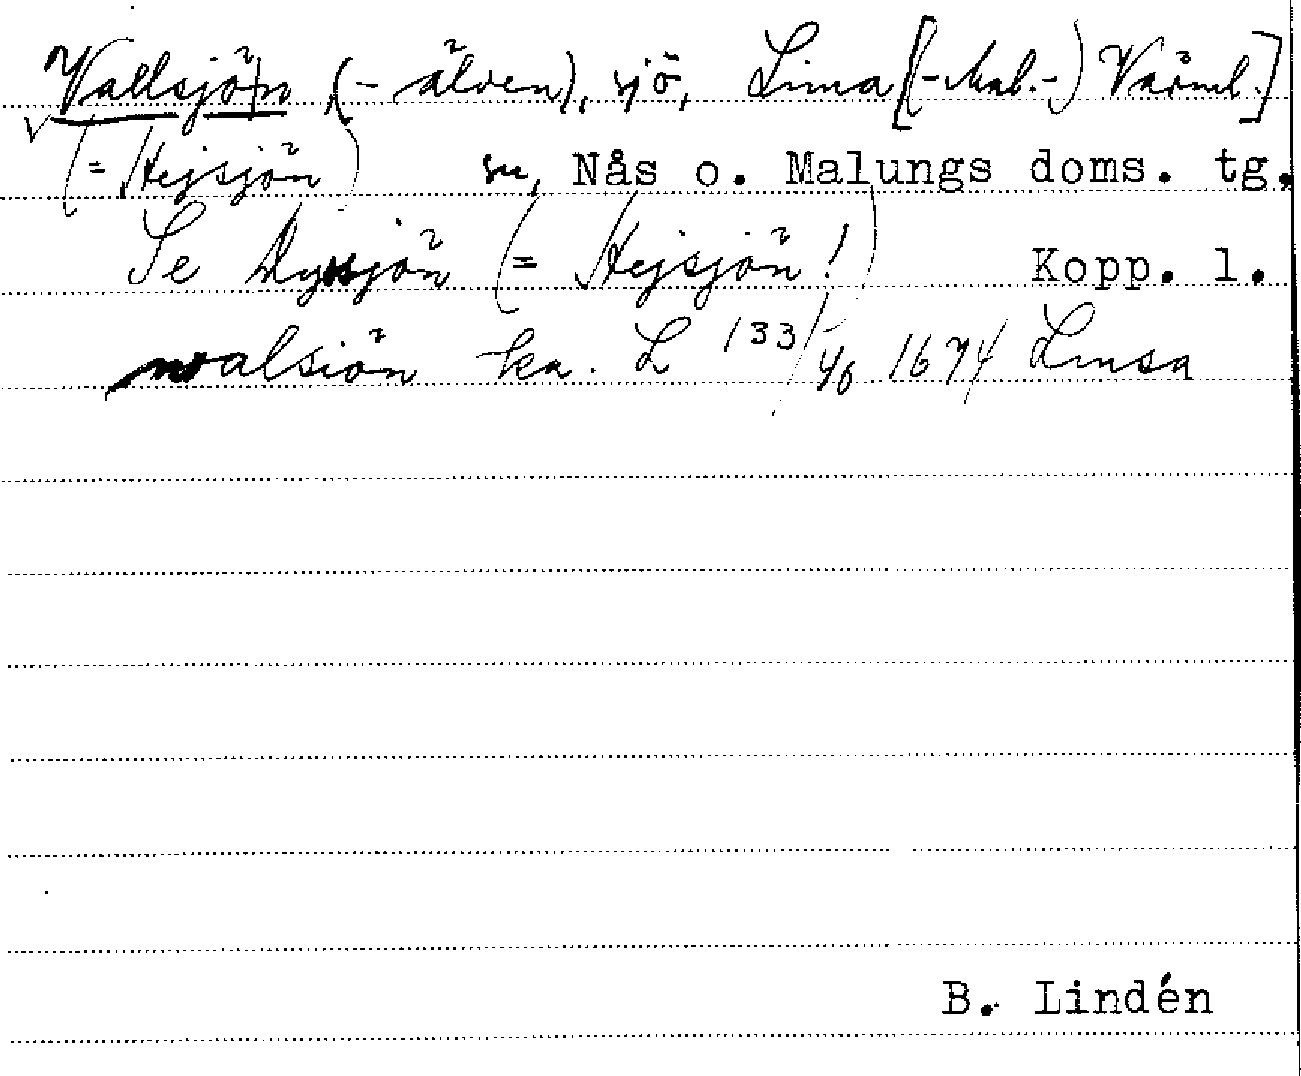 Vallsjön (-älven), sjö, Lima [(-Mal.-) Värml.]
(= Hejsjön) sn, Nås o. Malungs doms. tg.
Se (= Hejsjön!) Kopp. l.
walsiön ka. L 133/ 1674 Limsa
B. Lindén